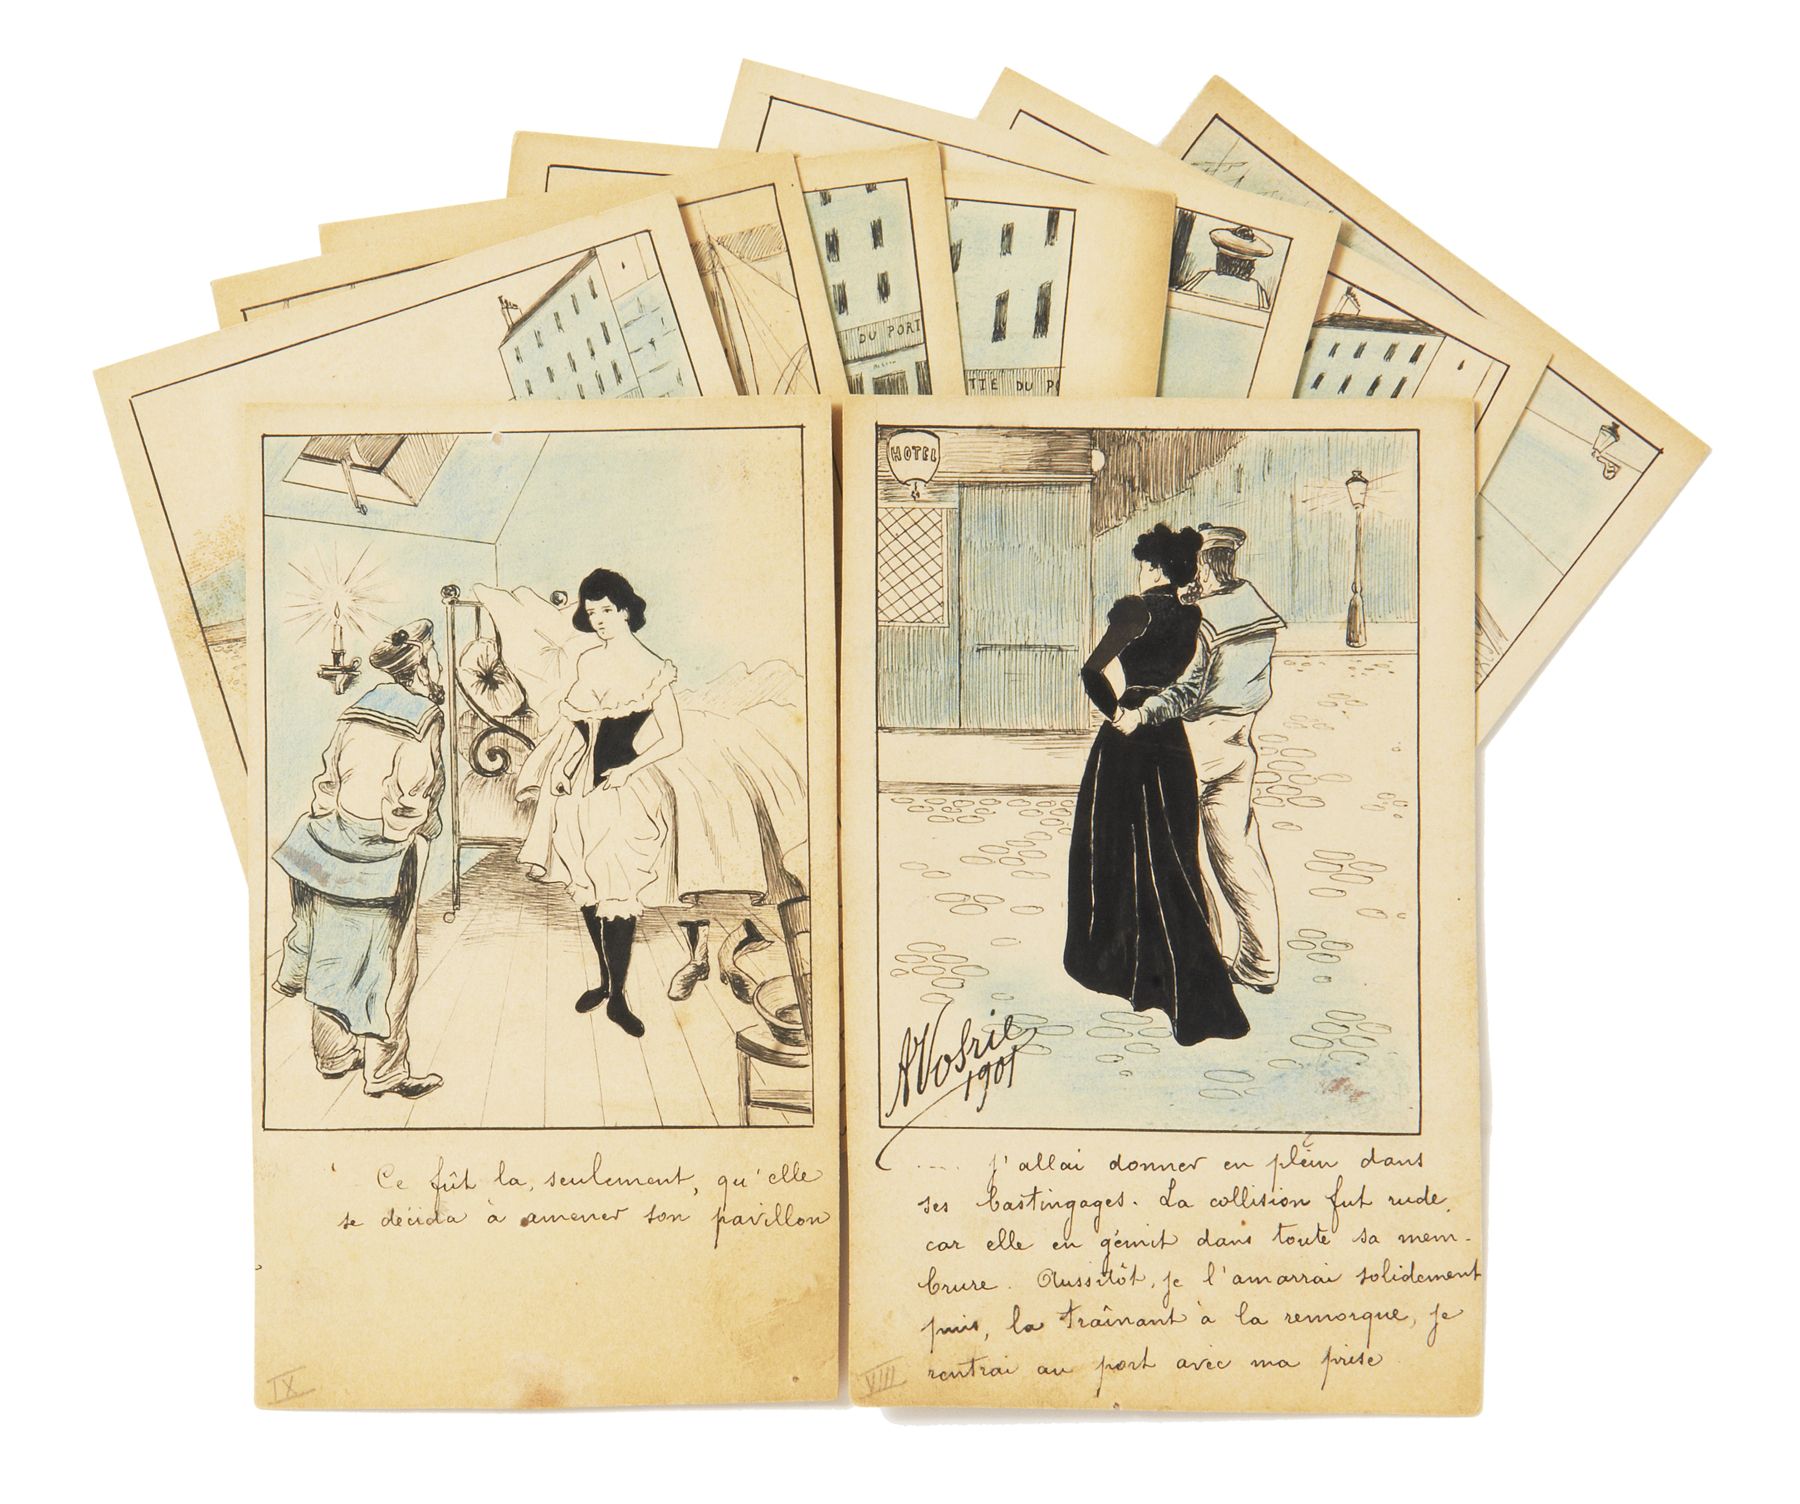 DU PORT
TIE DU P
HOTEL
AVosril
1901
Ce fût la, seulement, qu'elle
se décida à amener son pavillon
IX
.... j'allai donner en plein dans
ses bastingages. La collision fut rude,
car elle en gémit dans toute sa mem-
brure. Aussitôt, je l'amarrai solidement
puis, la traînant à la remorque, je
rentrai au port avec ma prise
VIII